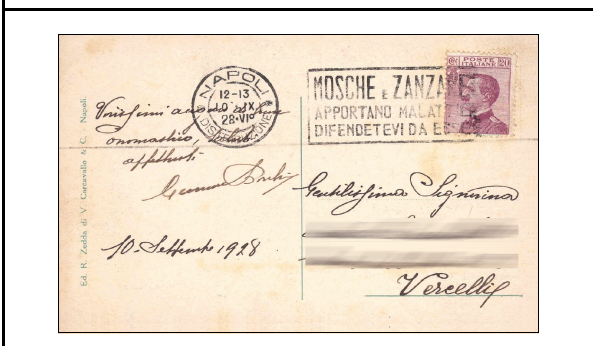 Ed. R. Zedda di V. Carcavallo & C. Napoli.
NAPOLI
12-13
10·IX
28·VIº
DISTRIBUZIONE
MOSCHE E ZANZA
APPORTANO MALAT
DIFENDETEVI DA ES
POSTE
ITALIANE
onomastico,
affettuosi
10-Settembre 1928
Gentilissima Signorina
Vercelli